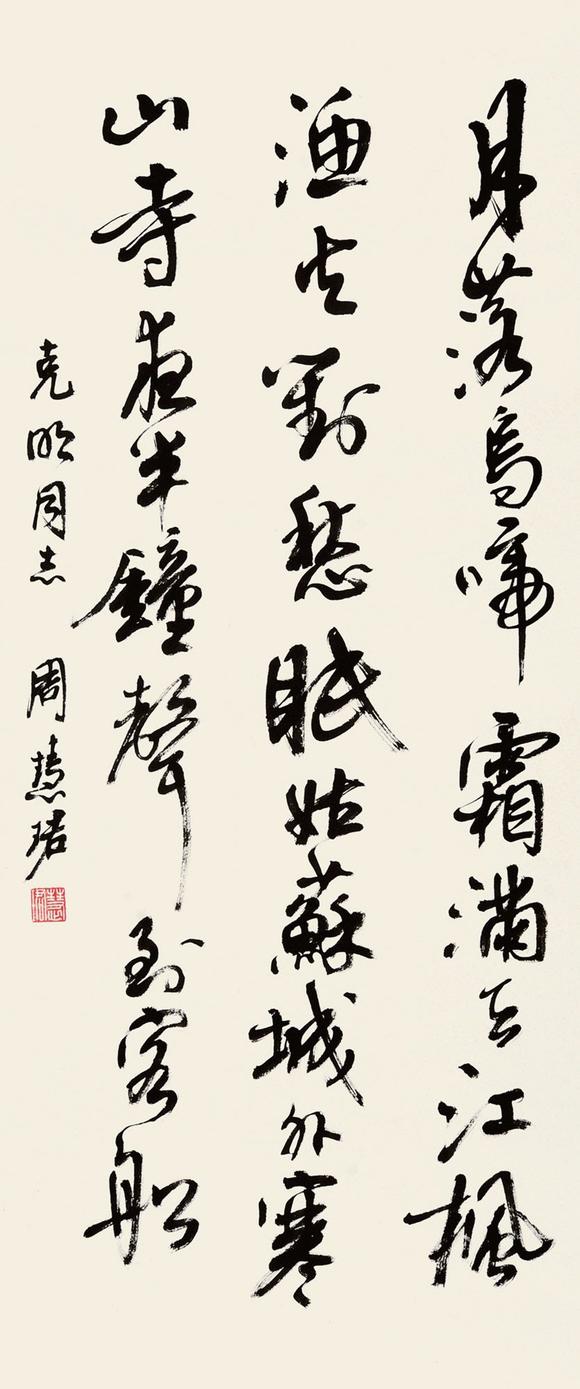 月落烏啼霜滿天江楓
漁火對愁眠姑蘇城外寒
山寺夜半鐘聲到客船
克明同志 周慧珺